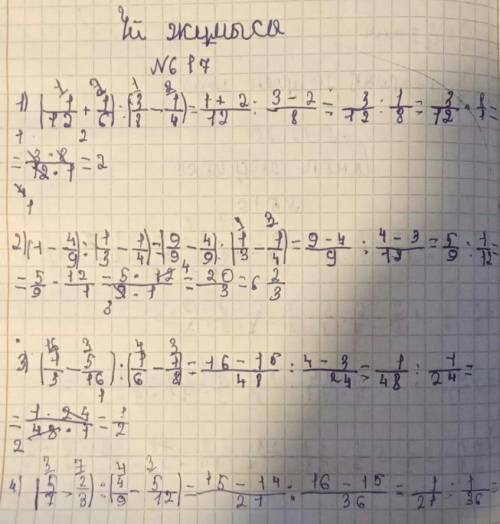 Үй жұмысы
№617
1) (1/12 + 1/6) : (3/8 - 1/4) = 1+2/12 : 3-2/8 = 3/12 : 1/8 = 3/12 · 8/1 =
= 3·8/12·1 = 2
2) (1 - 4/9) : (1/3 - 1/4) = (9/9 - 4/9) : (1/3 - 1/4) = 9-4/9 : 4-3/12 = 5/9 : 1/12 =
= 5/9 · 12/1 = 5·12/9·1 = 20/3 = 6 2/3
3) (1/3 - 5/16) : (1/6 - 1/8) = 16-15/48 : 4-3/24 = 1/48 : 1/24 =
= 1·24/48·1 = 1/2
4) (5/7 - 2/3) : (4/9 - 5/12) = 15-14/21 : 16-15/36 = 1/21 : 1/36 =